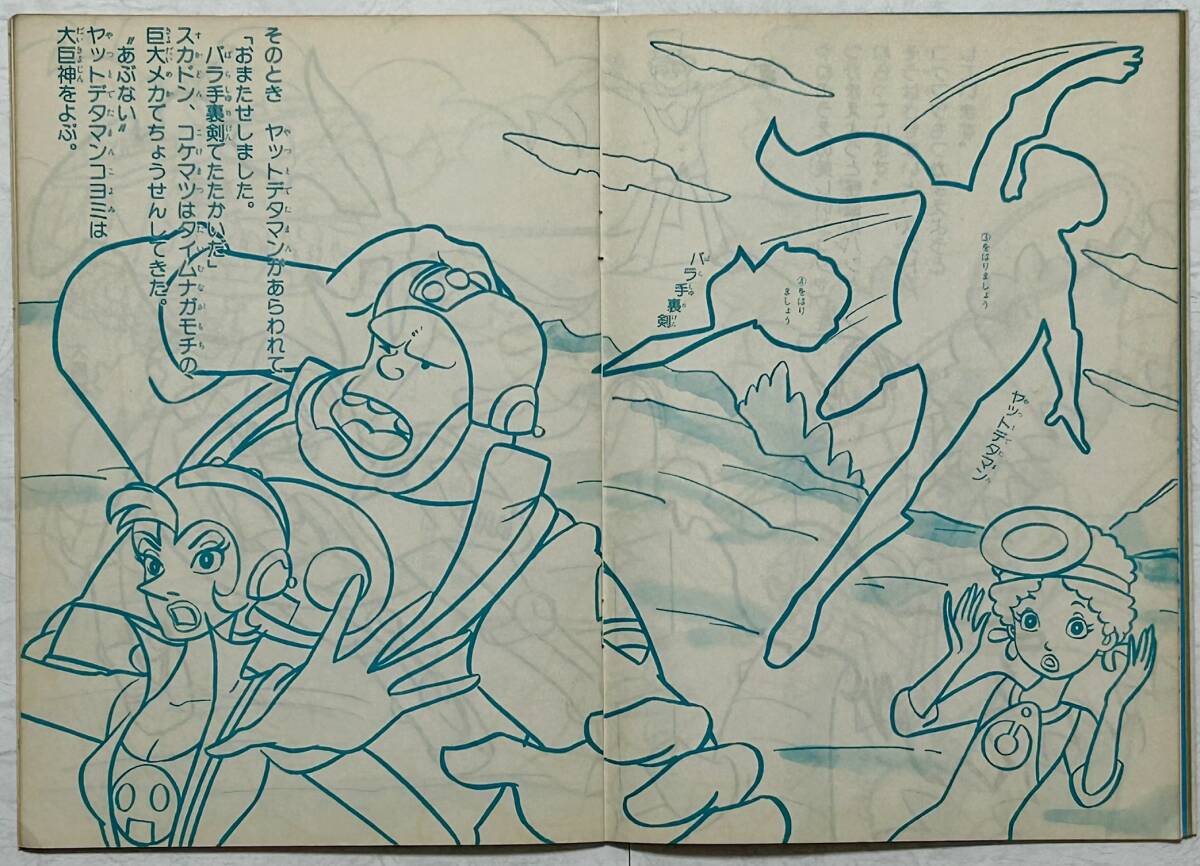 そのとき　ヤットデタマンがあらわれて
「おまたせしました。
バラ手裏剣でたたかいだ」
スカドン、コケマツはタイムナガモチの
巨大メカでちょうせんしてきた。
〝あぶない〟
ヤットデタマンコヨミは
大巨神をよぶ。
バラ手裏剣
④をはり
ましょう
③をはりましょう
ヤットデタマン